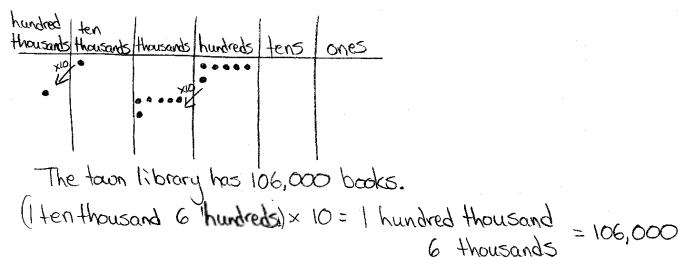 hundred thousands ten thousands thousands hundreds tens ones
x10
x10
The town library has 106,000 books.
(1 ten thousand 6 hundreds) x 10 = 1 hundred thousand
6 thousands = 106,000